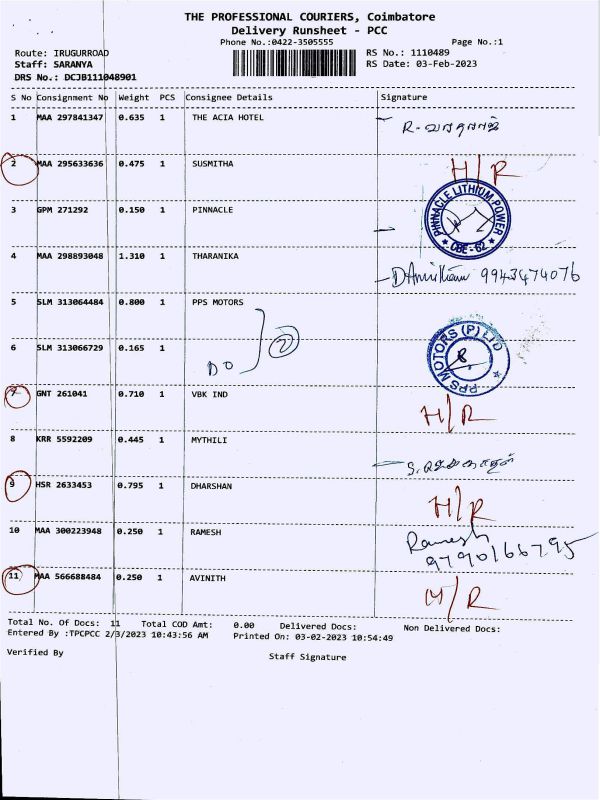 THE PROFESSIONAL COURIERS, Coimbatore
Delivery Runsheet - PCC
Phone No.:0422-3505555 Page No.:1
Route: IRUGURROAD RS No.: 1110489
Staff: SARANYA RS Date: 03-Feb-2023
DRS No.: DCJB111048901
S No Consignment No Weight PCS Consignee Details Signature
1 MAA 297841347 0.635 1 THE ACIA HOTEL
2 MAA 295633636 0.475 1 SUSMITHA H/R
3 GPM 271292 0.150 1 PINNACLE PINNACLE LITHIUM POWER CBE-62
4 MAA 298893048 1.310 1 THARANIKA 9943474076
5 SLM 313064484 0.800 1 PPS MOTORS
6 SLM 313066729 0.165 1 DO 2 PPS MOTORS (P) LTD
7 GNT 261041 0.710 1 VBK IND H/R
8 KRR 5592209 0.445 1 MYTHILI
9 HSR 2633453 0.795 1 DHARSHAN H/R
10 MAA 300223948 0.250 1 RAMESH Ramesh
9790166795
11 MAA 566688484 0.250 1 AVINITH H/R
Total No. Of Docs: 11 Total COD Amt: 0.00 Delivered Docs: Non Delivered Docs:
Entered By :TPCPCC 2/3/2023 10:43:56 AM Printed On: 03-02-2023 10:54:49
Verified By Staff Signature